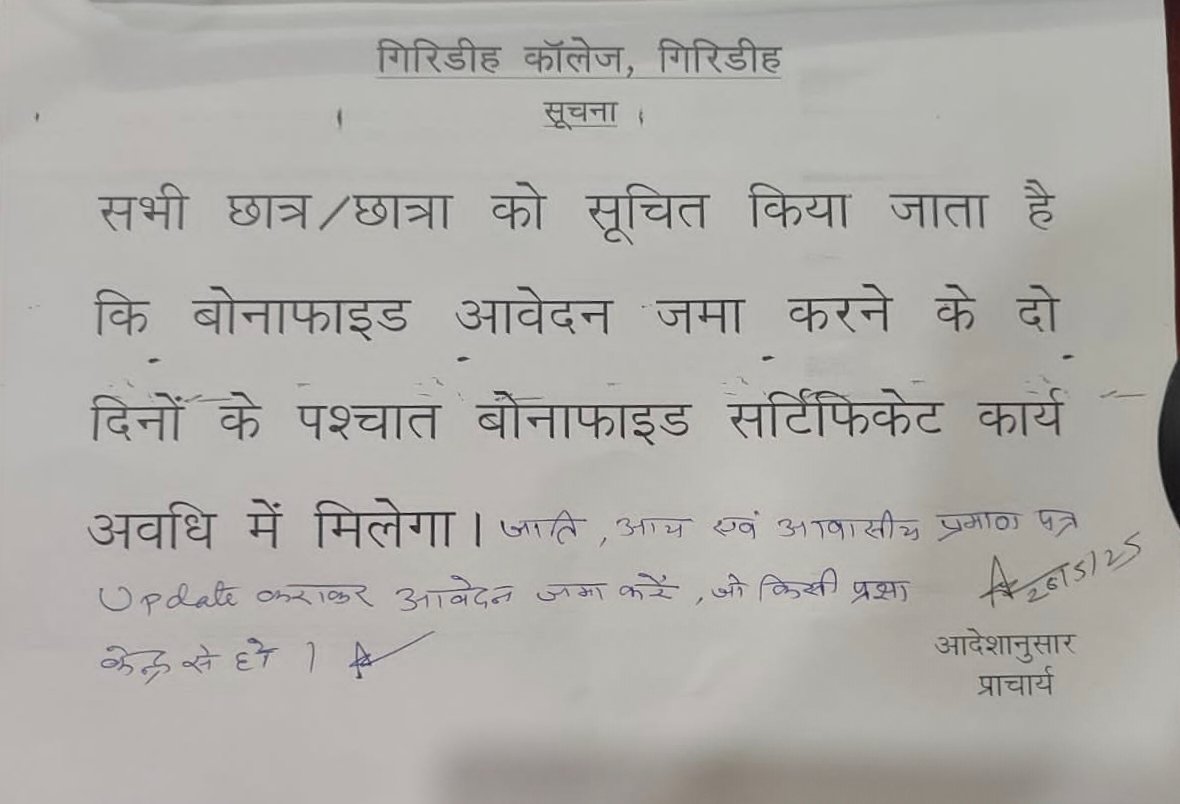 गिरिडीह कॉलेज, गिरिडीह
सूचना ।
सभी छात्र/छात्रा को सूचित किया जाता है
कि बोनाफाइड आवेदन जमा करने के दो
दिनों के पश्चात बोनाफाइड सर्टिफिकेट कार्य
अवधि में मिलेगा। जाति, आय एवं आवासीय प्रमाण पत्र
Update कराकर आवेदन जमा करें, जो किसी प्रज्ञा
केन्द्र से हो ।
आदेशानुसार
प्राचार्य